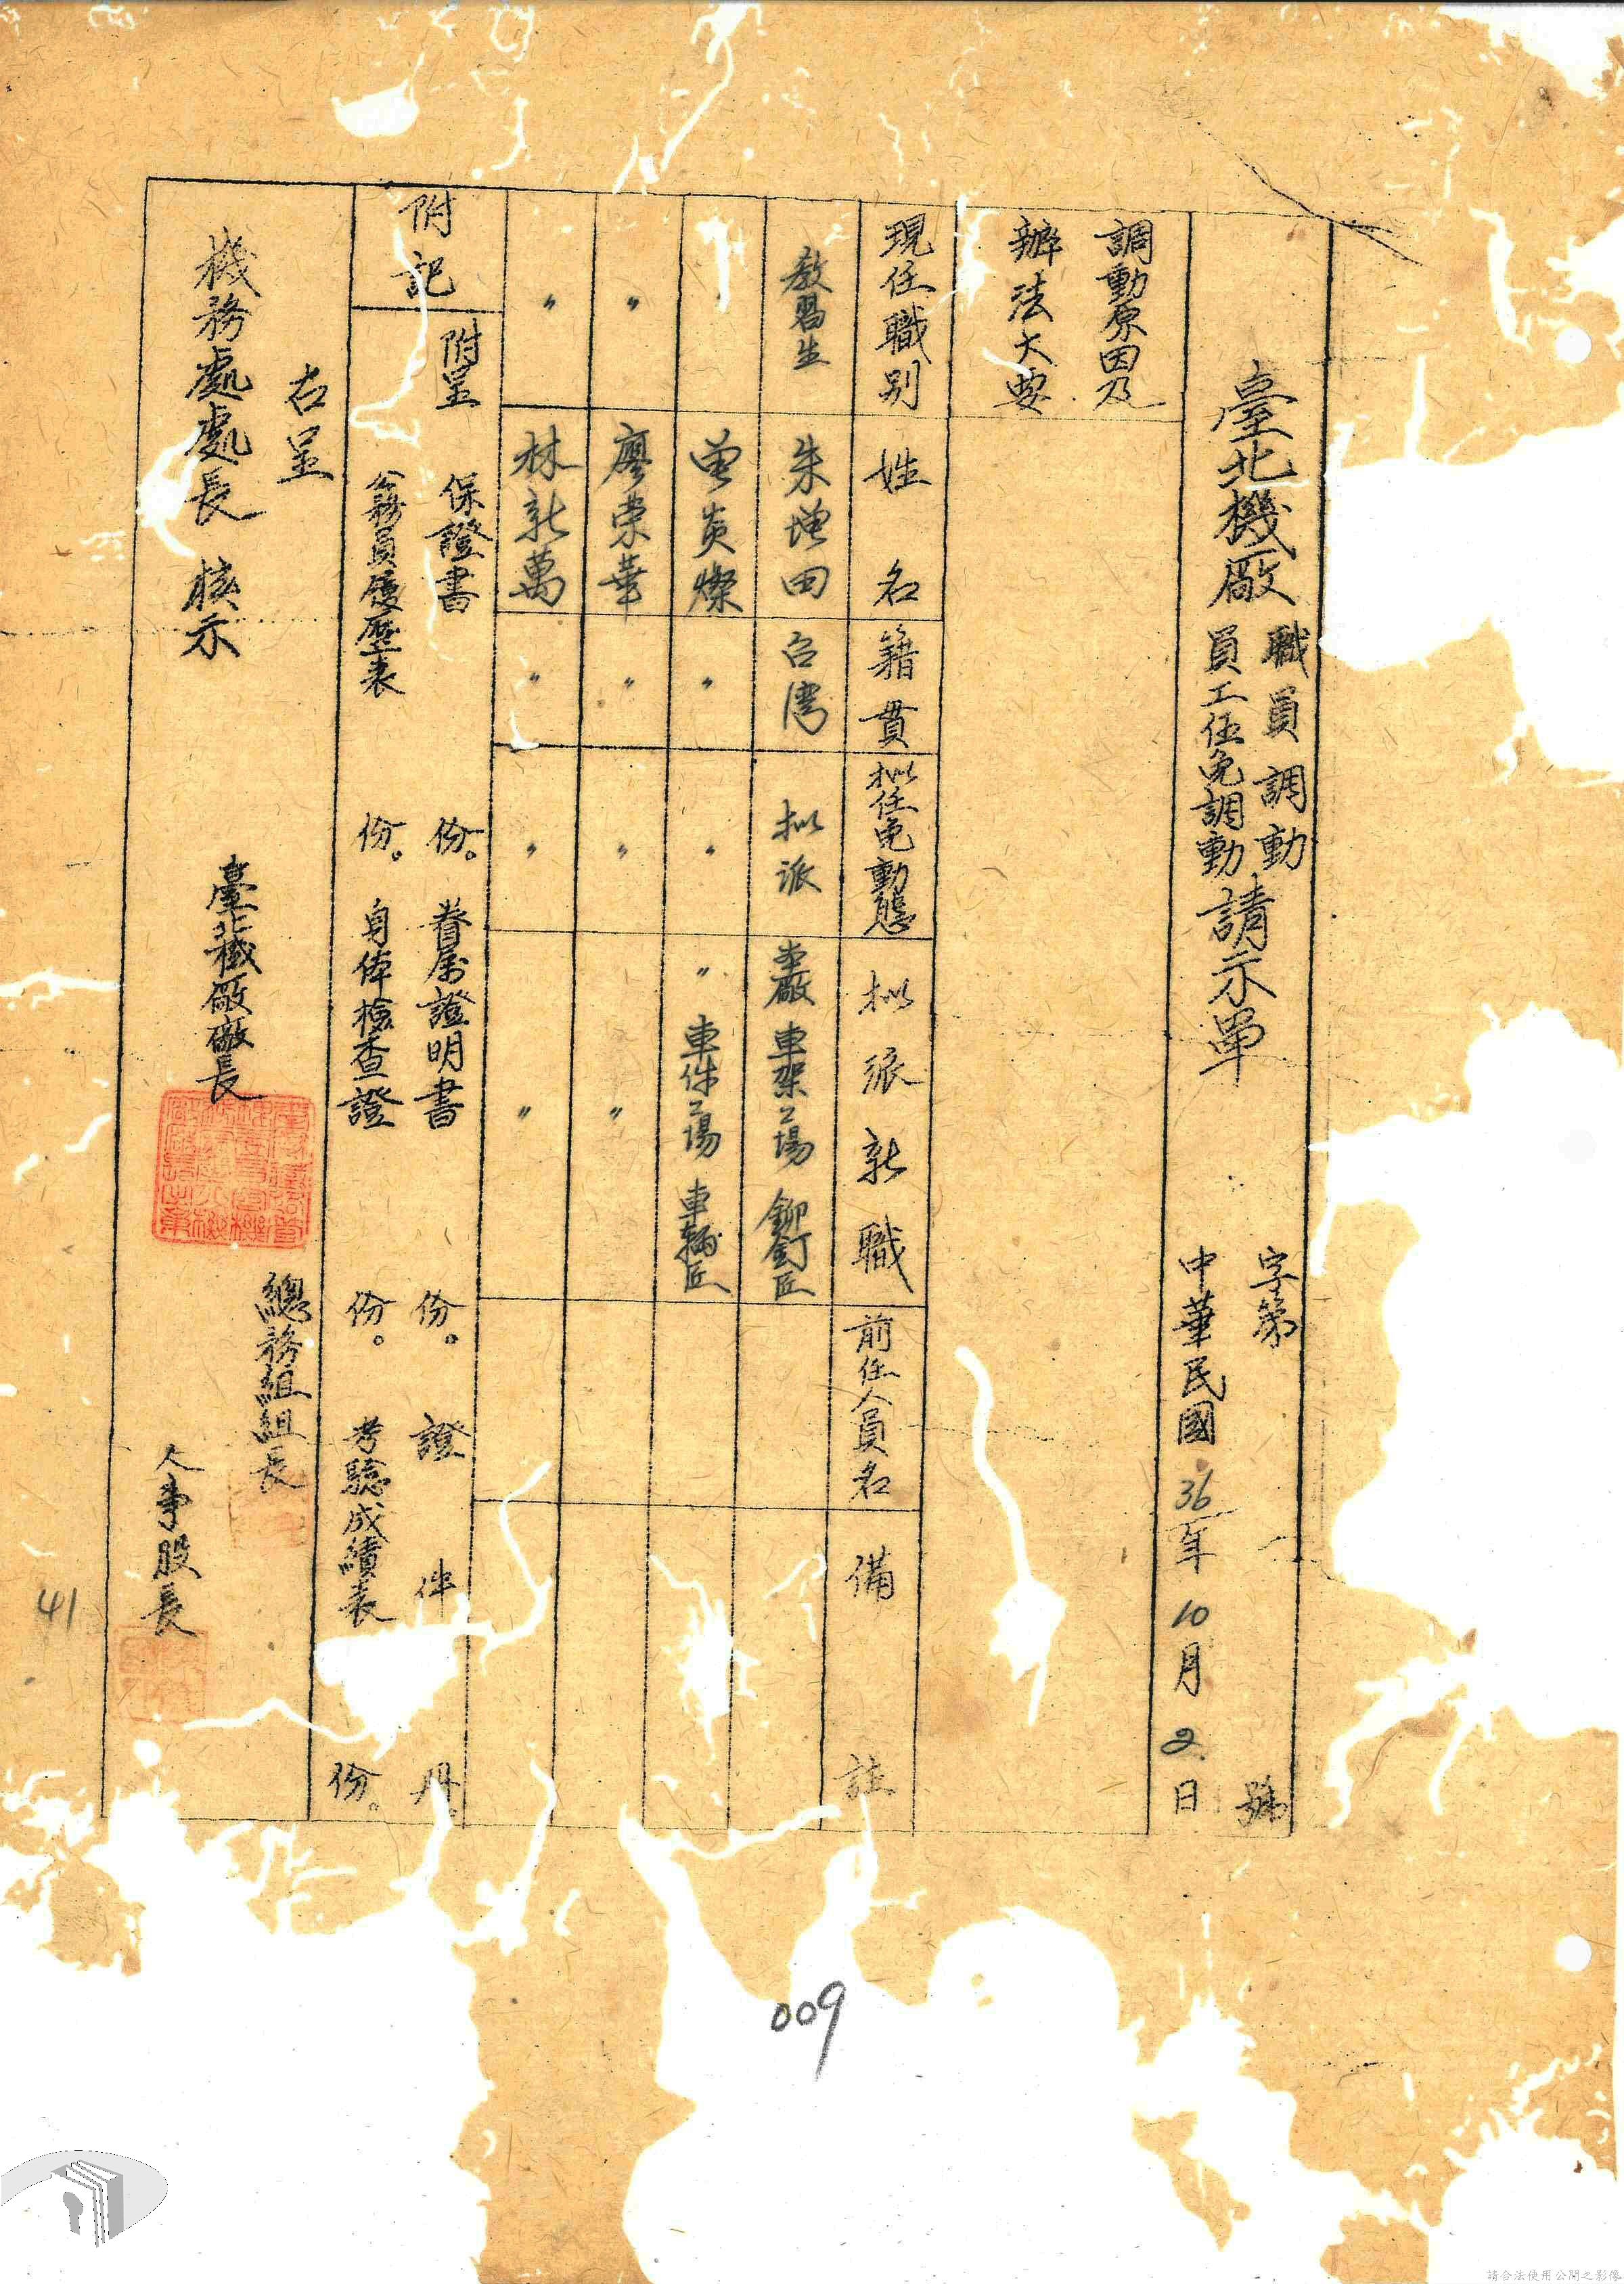 臺北機廠
職員調動
員工任免調動
請示單
字第 號
中華民國 36 年 10 月 2 日
調動原因及
辦法大要
現任職別 姓名 籍貫 拟任免動態 拟派新職 前任人員名 備註
教習生 朱增田 台湾 拟派 本廠 車架工場 鉚釘匠
〃 曾炎燦 〃 〃 〃 車件工場 車輛匠
〃 廖荣華 〃 〃 〃
〃 林新萬 〃 〃 〃
附記
附呈 保證書 份。眷屬證明書 份。證件 份。
公務員履歷表 份。身体檢查證 份。考驗成績表 份。
右呈
機務處處長 核示
臺北機廠廠長
總務組組長
人事股長
41
009
請合法使用公開之影像